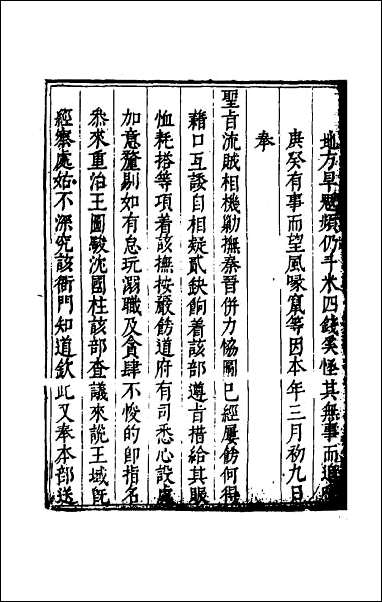 地方旱魃頻仍斗米四錢矣怪其無事而逍
庚癸有事而望風喙竄等因本年三月初九日
奉
聖旨流賊相機勦撫秦晉併力恊圖已經屢飭何得
藉口互諉自相疑貳缺餉着該部遵旨措給其賑
恤耗搭等項着該撫按嚴飭道府有司悉心設處
加意釐剔如有怠玩溺職及貪肆不悛的即指名
叅來重治王圖駿沈國柱該部查議來說王域旣
經察處姑不深究該衙門知道欽此又奉本部送